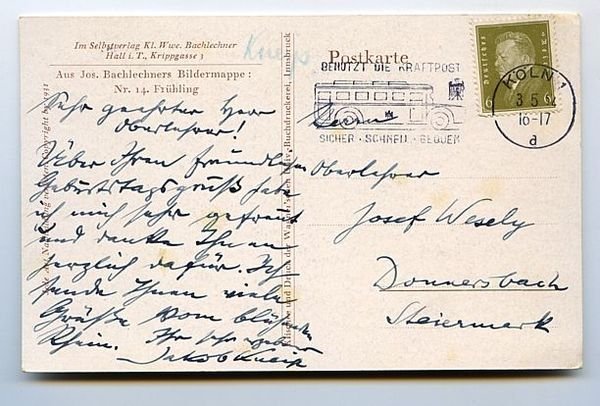 Im Selbstverlag Kl. Wwe. Bachlechner
Hall i. T., Krippgasse 3
Aus Jos. Bachlechners Bildermappe:
Nr. 14. Frühling
Sehr geehrter Herr
Oberlehrer!
Über Ihren freundlichen
Geburtstagsgruß habe
ich mich sehr gefreut
und danke Ihnen
herzlich dafür. Ich
sende Ihnen viele
Grüße vom blühenden
Rhein. Ihr sehr
Jakob Kneip
Kneip.
Postkarte
BENÜTZT DIE KRAFTPOST
SICHER · SCHNELL · BEQUEM
Herrn
Oberlehrer
Josef Wesely
Donnersbach
Steiermark
Deutsches Reich
6
6
KÖLN 1
3 5
16-17
d
Copyright 1931
Klischee und Druck der Wagner'schen Univ.-Buchdruckerei, Innsbruck